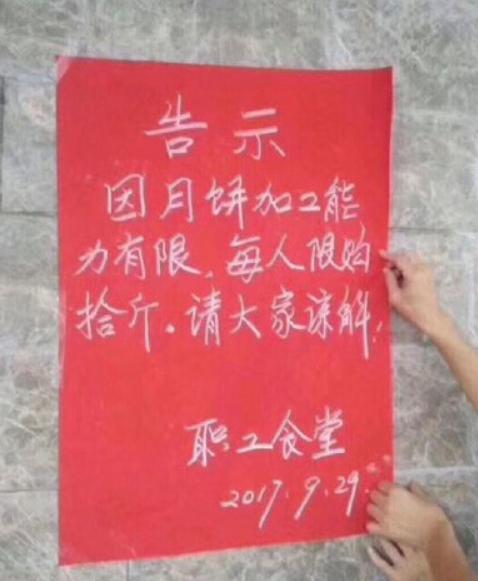 告示
因月饼加工能
力有限，每人限购
拾斤。请大家谅解！
职工食堂
2017.9.29.